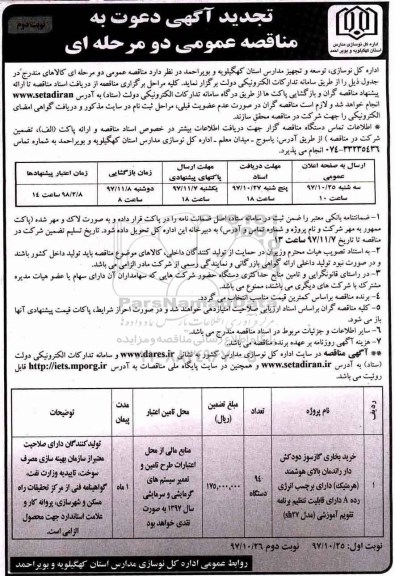 نوبت دوم
تجدید آگهی دعوت به
مناقصه عمومی دو مرحله ای
اداره کل نوسازی مدارس
استان کهگیلویه و بویراحمد
اداره کل نوسازی، توسعه و تجهیز مدارس استان کهگیلویه و بویراحمد در نظر دارد مناقصه عمومی دو مرحله ای کالاهای مندرج در
جدول ذیل را از طریق سامانه تدارکات الکترونیکی دولت برگزار نماید. کلیه مراحل برگزاری مناقصه از دریافت اسناد مناقصه تا ارائه
پیشنهاد مناقصه گران و بازگشایی پاکت ها از طریق درگاه سامانه تدارکات الکترونیکی دولت (ستاد) به آدرس www.setadiran
انجام خواهد شد و لازم است مناقصه گران در صورت عدم عضویت قبلی، مراحل ثبت نام در سایت مذکور و دریافت گواهی امضای
الکترونیکی را جهت شرکت در مناقصه محقق سازند.
* اطلاعات تماس دستگاه مناقصه گزار جهت دریافت اطلاعات بیشتر در خصوص اسناد مناقصه و ارائه پاکت (الف)، تضمین
شرکت در مناقصه ) از طریق آدرس: یاسوج ـ میدان معلم ـ اداره کل نوسازی مدارس استان کهگیلویه و بویراحمد به شماره تماس
۰۷۴-۳۳۲۳۵۴۳۶ انجام می پذیرد.
ارسال به صفحه اعلان عمومی | مهلت دریافت اسناد | مهلت ارسال پاکتهای پیشنهادی | زمان بازگشایی | زمان اعتبار پیشنهادها
سه شنبه ۹۷/۱۰/۲۵ ساعت ۱۰ | پنج شنبه ۹۷/۱۰/۲۷ ساعت ۱۸ | یکشنبه ۹۷/۱۱/۷ ساعت ۱۸ | دوشنبه ۹۷/۱۱/۸ ساعت ۸ | ۹۸/۲/۸ ساعت ۱۴
۱- ضمانتنامه بانکی معتبر را ضمن ثبت در سامانه ستاد، اصل ضمانت نامه را در پاکت قرار داده و به صورت لاک و مهر شده (پاکت
ممهور به مهر شرکت و نام پروژه و شماره تماس و آدرس) به دبیرخانه این اداره کل تحویل داده شود. تاریخ تسلیم تضمین شرکت در
مناقصه تا تاریخ ۹۷/۱۱/۷ ساعت
۲- به استناد تصویب هیات محترم وزیران در حمایت از تولید کنندگان داخلی، کالاهای موضوع مناقصه باید تولید داخل کشور باشند
و در صورت نبود تولید داخلی ارائه گواهی بازرگانی و نمایندگی رسمی از شرکت مادر الزامی می باشد.
۳- در راستای قانونگرایی و تامین منابع حداکثری دستگاه حضور شرکت هایی که سهامداران آن دارای سهام یا عضو هیات مدیره
مشترک با شرکت های دیگری می باشند، ممنوع می باشد.
۴- برنده مناقصه براساس کمترین قیمت مناسب انتخاب می گردد.
۵- کلیه مناقصه گران براساس اسناد ارزیابی صلاحیت امتیازدهی خواهند شد و در صورت احراز شرایط، پاکت قیمت پیشنهادی آنها
باز می شود.
۶- سایر اطلاعات و جزئیات مربوط در اسناد مناقصه مندرج می باشد.
۷- هزینه آگهی روزنامه بر عهده برنده مناقصه می باشد.
** آگهی مناقصه در سایت اداره کل نوسازی مدارس کشور به نشانی www.dares.ir و سامانه تدارکات الکترونیکی دولت
(ستاد) به آدرس www.setadiran.ir و همچنین در سایت پایگاه ملی مناقصات به آدرس http://iets.mporg.ir قابل
رویت می باشد.
ردیف | نام پروژه | تعداد | مبلغ تضمین (ریال) | محل تامین اعتبار | مدت پیمان | توضیحات
۱ | خرید بخاری گازسوز دودکش دار راندمان بالای هوشمند (هرمتیک) دارای برچسب انرژی رده A دارای قابلیت تنظیم برنامه تقویم آموزشی (مدل sh۲۷) | ۹۴۰ دستگاه | ۱۷۵,۰۰۰,۰۰۰ | منابع مالی از محل اعتبارات طرح تامین و تعمیر سیستم های گرمایشی و سرمایشی سال ۱۳۹۷ به صورت نقدی خواهد بود | ۱ ماه | تولیدکنندگان دارای صلاحیت معتبر از سازمان بهینه سازی مصرف سوخت، تاییدیه وزارت نفت، گواهینامه فنی از مرکز تحقیقات راه مسکن و شهرسازی، پروانه کار و علامت استاندارد جهت محصول الزامی است.
نوبت اول: ۹۷/۱۰/۲۵ نوبت دوم ۹۷/۱۰/۲۶
روابط عمومی اداره کل نوسازی مدارس استان کهگیلویه و بویراحمد